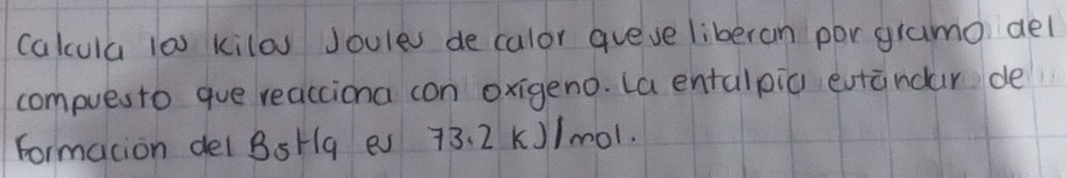 Calcula los Kilos Joules de calor que se liberan por gramo del
compuesto que reacciona con oxígeno. La entalpia estándar de
Formacion del B5H9 es 73.2 KJ/mol.